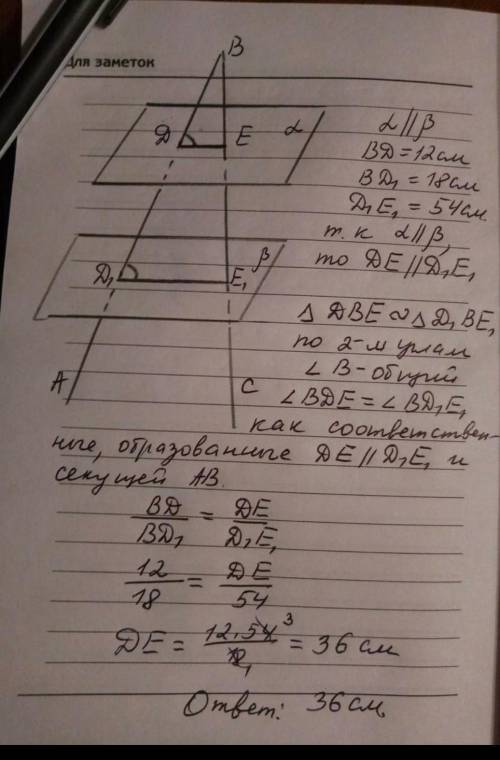 Для заметок
B
D E α
D₁ E₁ β
A C
α ∥ β
BD = 12 см
BD₁ = 18 см
D₁E₁ = 54 см.
т. к α ∥ β,
то DE ∥ D₁E₁
Δ DBE ∾ Δ D₁BE₁
по 2-м углам
∠ B - общий
∠ BDE = ∠ BD₁E₁
как соответствен-
ные, образованные DE ∥ D₁E₁ и
секущей AB.
BD/BD₁ = DE/D₁E₁
12/18 = DE/54
DE = 12·54³/18₁ = 36 см
Ответ: 36 см.